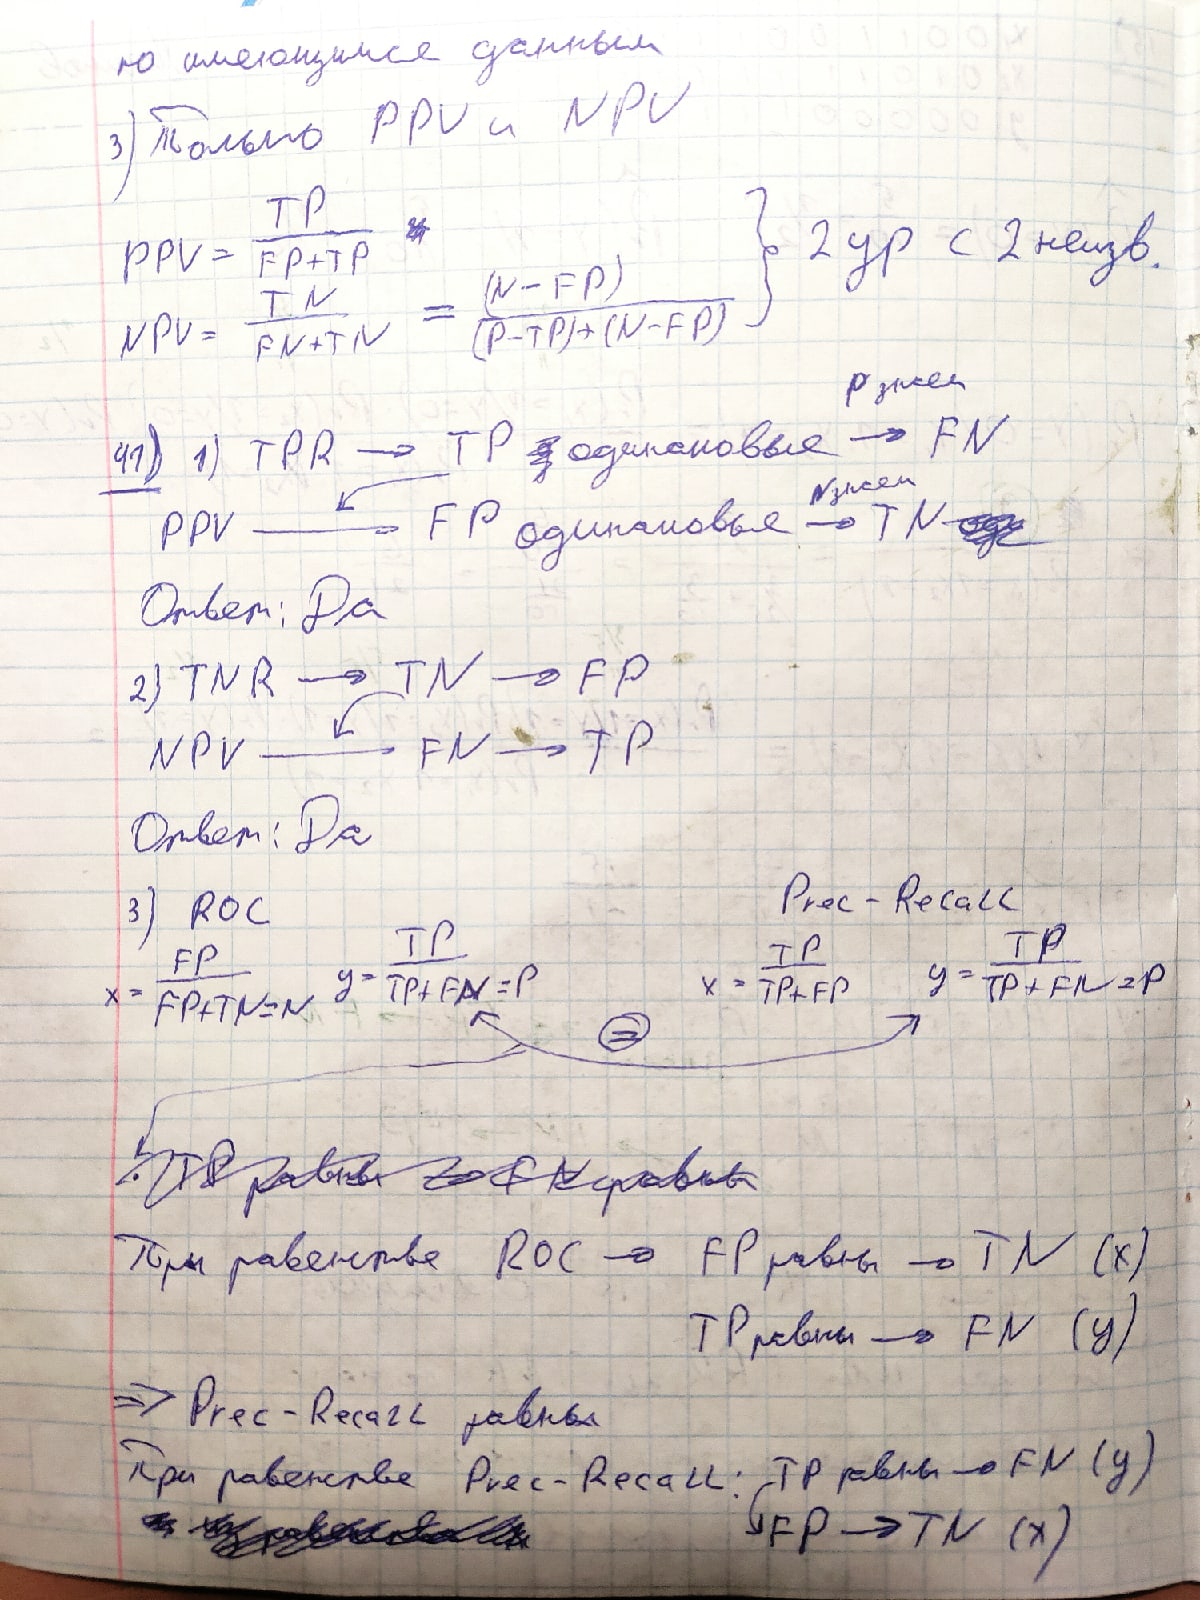 по имеющимся данным
3) Только PPV и NPV
PPV = TP / (FP+TP)
NPV = TN / (FN+TN) = (N-FP) / ((P-TP)+(N-FP)) } 2 ур с 2 неизв.
41) 1) TPR → TP одинаковые → (P знаем) FN
PPV → FP одинаковые → (N знаем) TN
Ответ: Да
2) TNR → TN → FP
NPV → FN → TP
Ответ: Да
3) ROC Prec-Recall
x = FP / (FP+TN=N) y = TP / (TP+FN=P) x = TP / (TP+FP) y = TP / (TP+FN=P)
=
TP равны FN равны
При равенстве ROC → FP равны → TN (x)
TP равны → FN (y)
⇒ Prec-Recall равны
При равенстве Prec-Recall: TP равны → FN (y)
FP → TN (x)